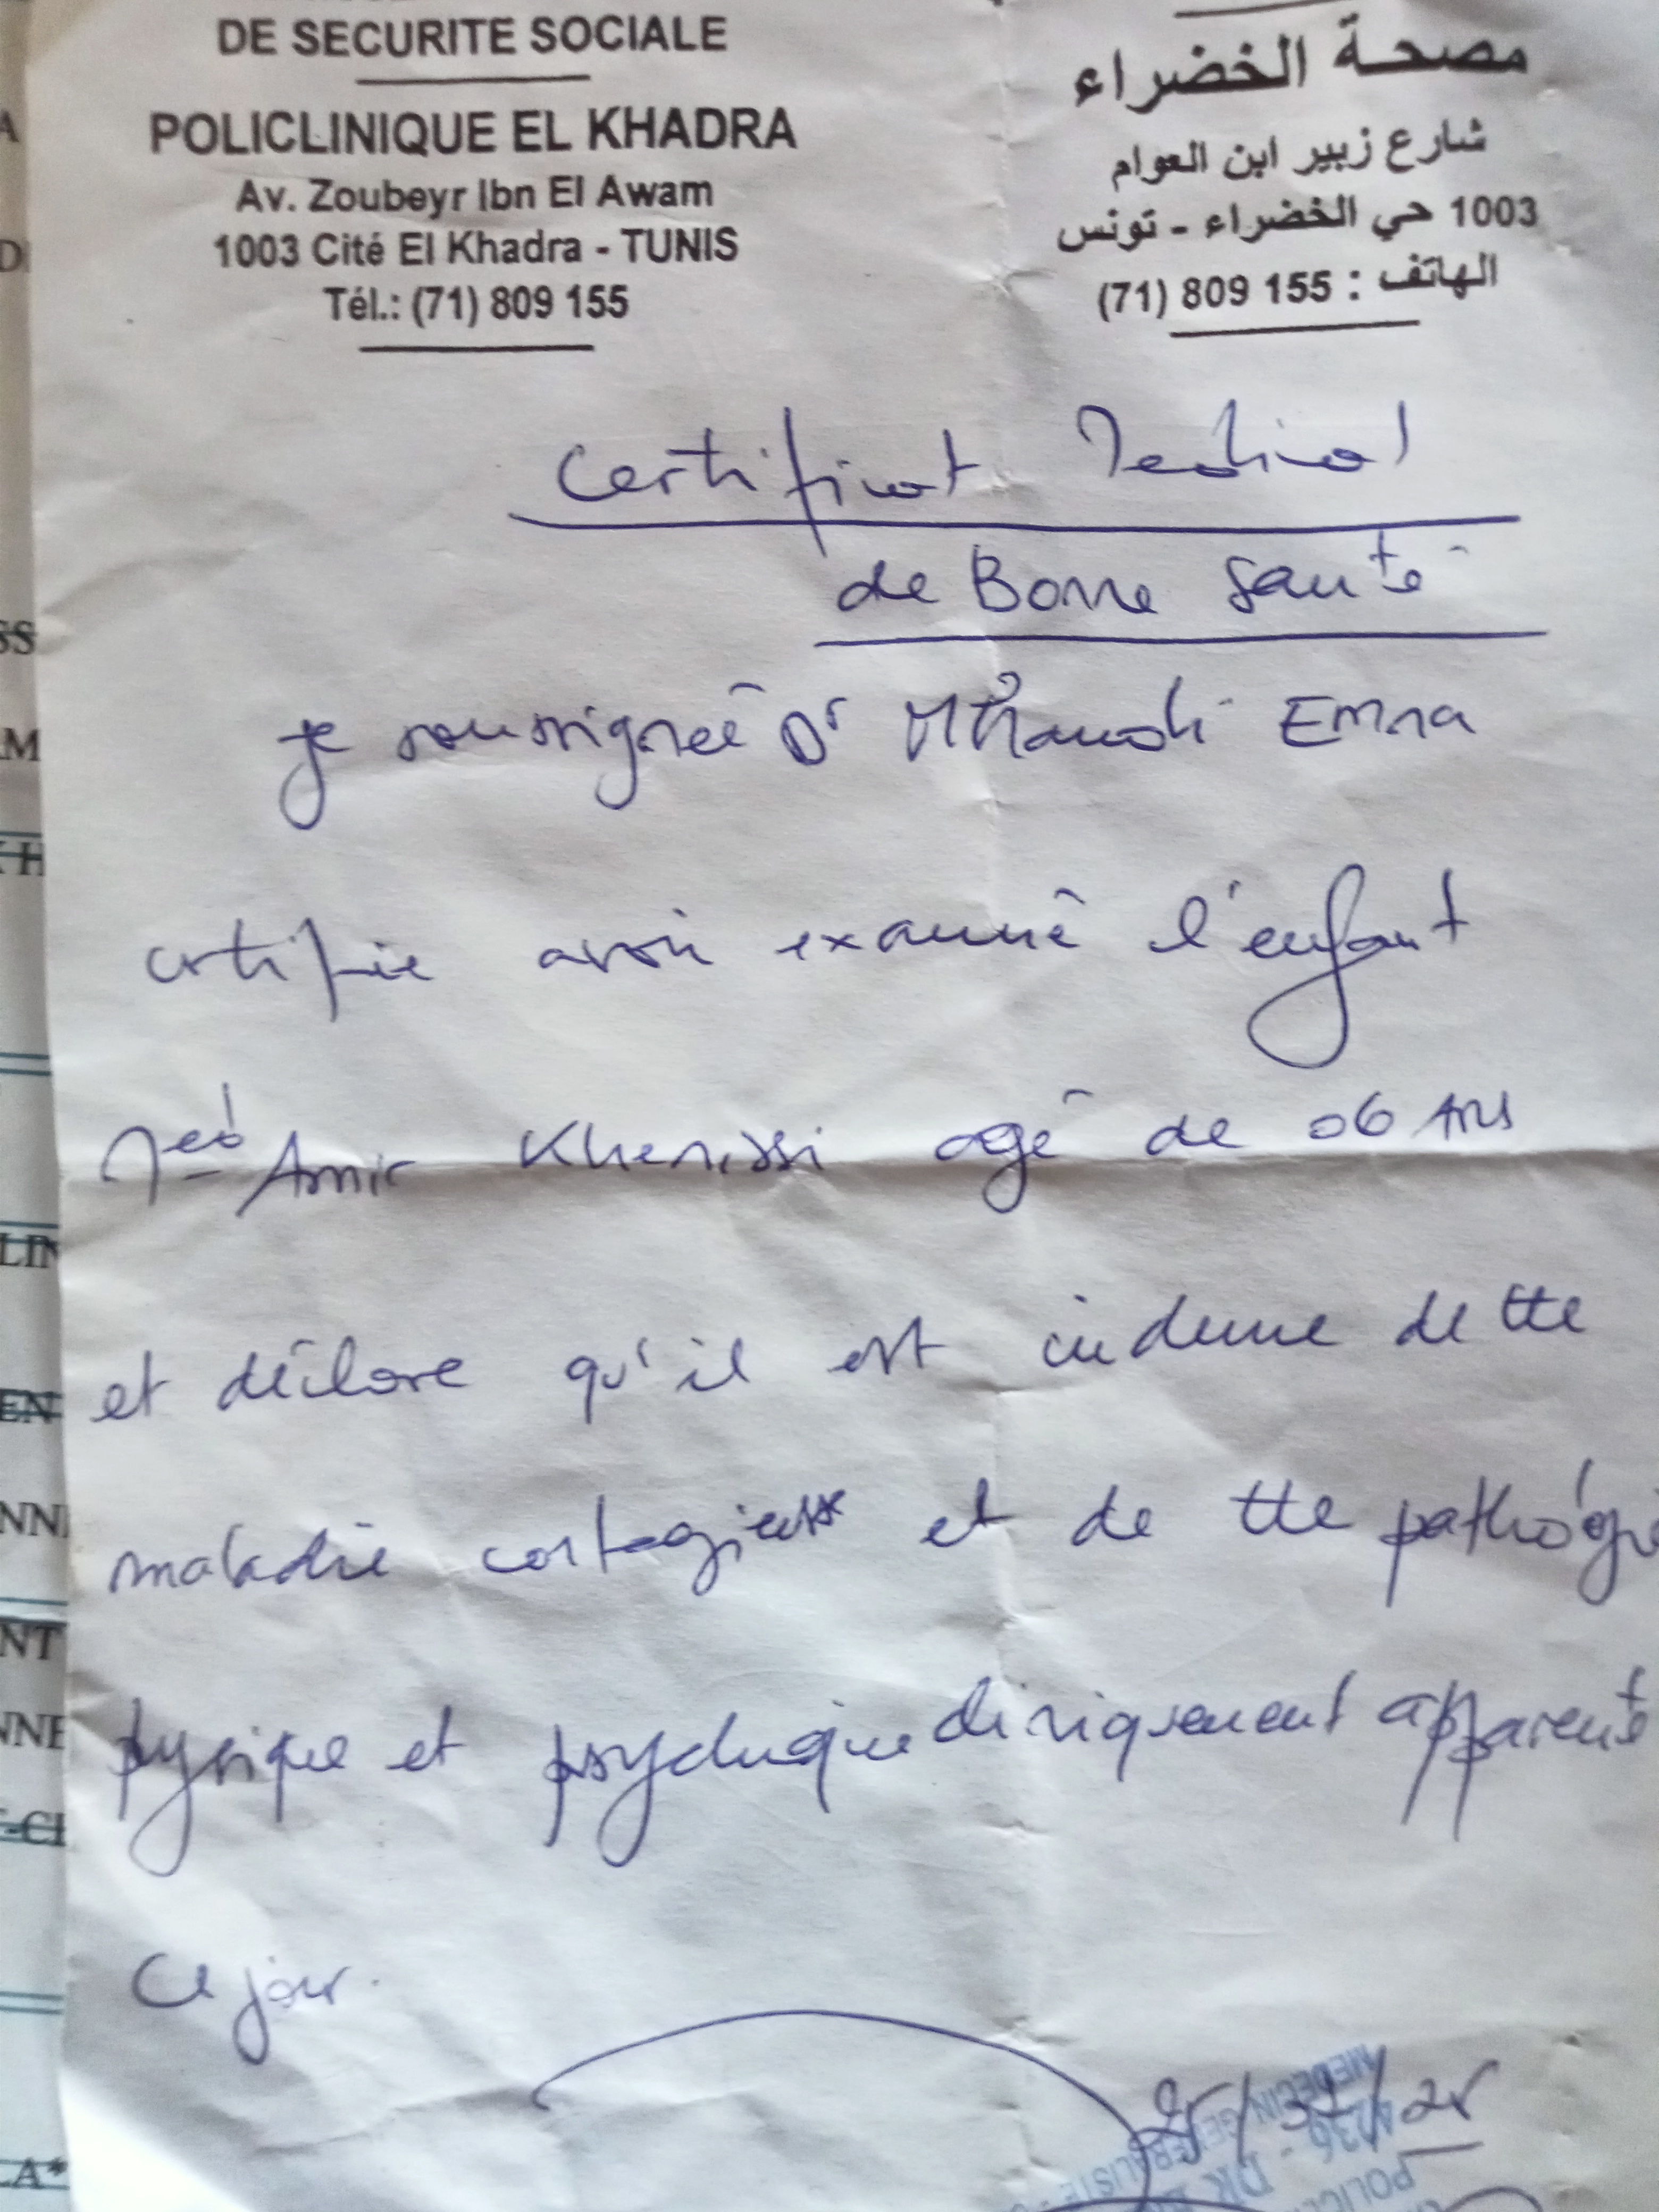 DE SECURITE SOCIALE
POLICLINIQUE EL KHADRA
Av. Zoubeyr Ibn El Awam
1003 Cité El Khadra - TUNIS
Tél.: (71) 809 155
مصحة الخضراء
شارع زبير ابن العوام
1003 حي الخضراء - تونس
الهاتف : 155 809 (71)
Certificat Medical
de Bonne Santé
je soussignée Dr Emna
certifie avoir examiné l'enfant
Amir Khenissi agé de 06 Ans
et déclare qu'il est indemne de tte
maladie contagieuse et de tte
physique et psychique apparente
Ce jour.
MEDECIN GENERALISTE